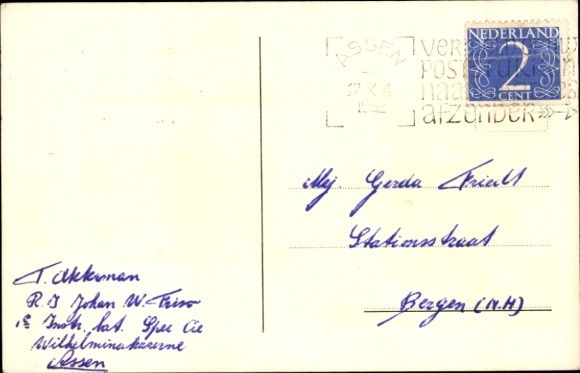 NEDERLAND
2
CENT
ASSEN
17 X 4
1952
VER
POST
naar
afzender
Mej. Gerda Friedt
Stationsstraat
Bergen (N.H)
T. Akkerman
R I Johan W. Friso
1e Instr. bat. Spec Cie
Wilhelminakazerne
Assen